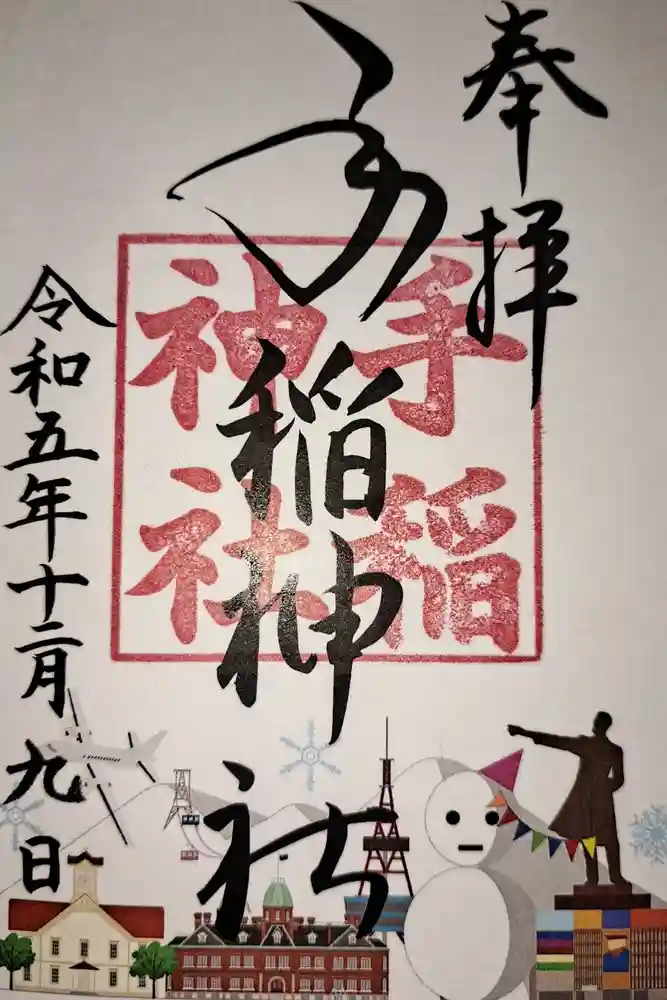 奉拝
手稲神社
手稲
神社
令和五年十二月九日